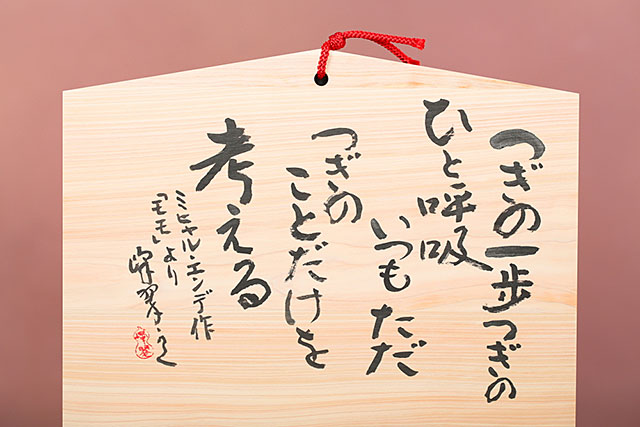 つぎの一歩つぎの
ひと呼吸
いつもただ
つぎの
ことだけを
考える
ミヒャル・エンデ作
「モモ」より